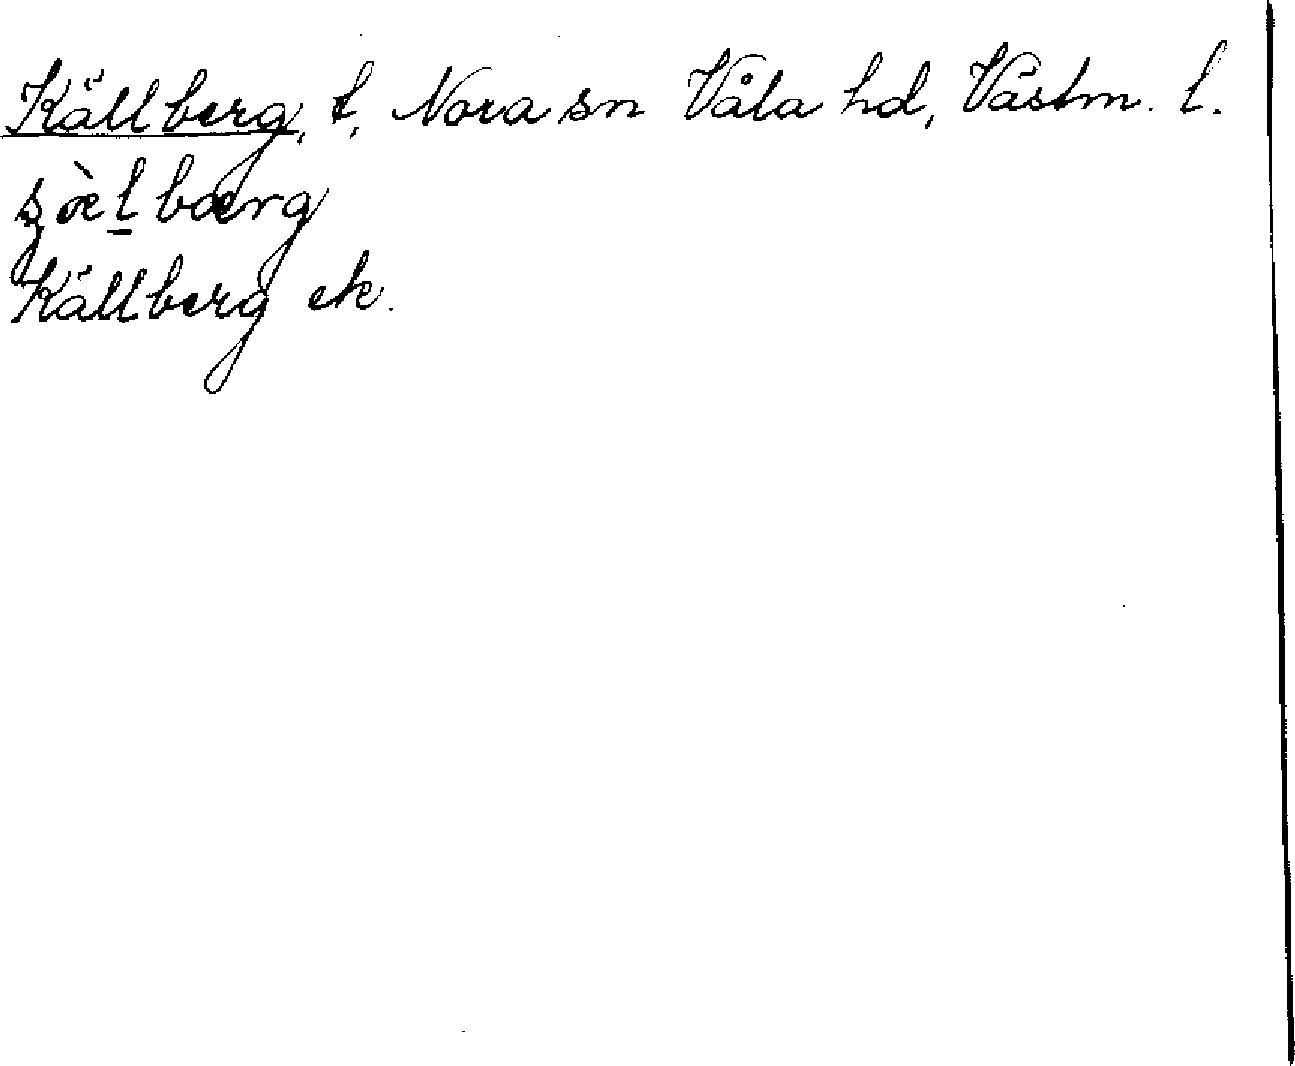 Källberg, t, Nora sn Våla hd, Västm. l.
ʂæ̀l̲bærg
Källberg ek.